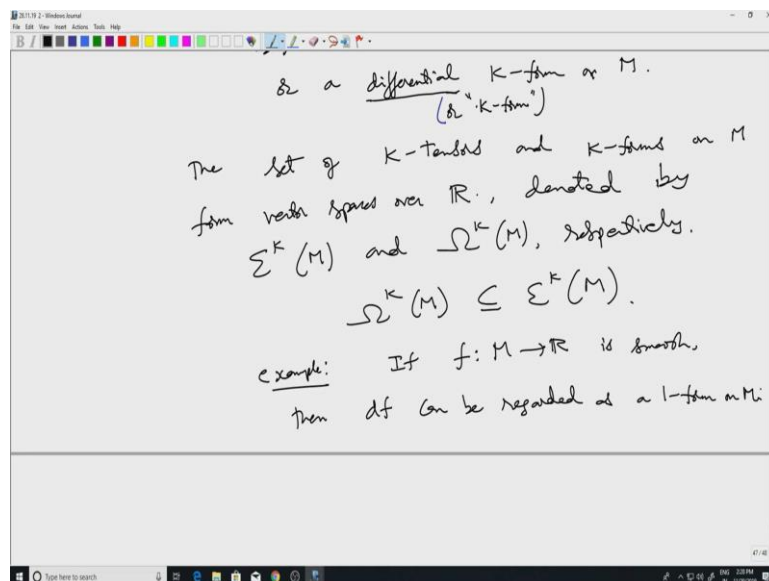 20.11.19 2 - Windows Journal
File Edit View Insert Actions Tools Help
or a differential k-form on M.
(or "k-form")
The set of k-tensors and k-forms on M
form vector spaces over ℝ, denoted by
Σᵏ(M) and Ωᵏ(M), respectively.
Ωᵏ(M) ⊆ Σᵏ(M).
example: If f: M → ℝ is smooth,
then df can be regarded as a 1-form on M:
47/48
Type here to search
ENG 2:20 PM